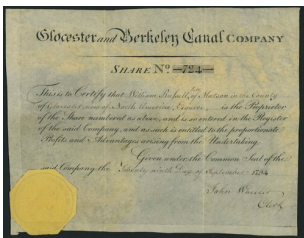 Glocester and Berkeley Canal COMPANY
SHARE Nº 724
This is to Certify that William Russell, of Matson in the County
of Glocester, of North America, Esquire, is the Proprietor
of the Share numbered as above, and is so entered in the Register
of the said Company, and as such is entitled to the proportionate
Profits and Advantages arising from the Undertaking.
Given under the Common Seal of the
said Company the Twenty ninth Day of September 1794
John Wheeler
Clerk